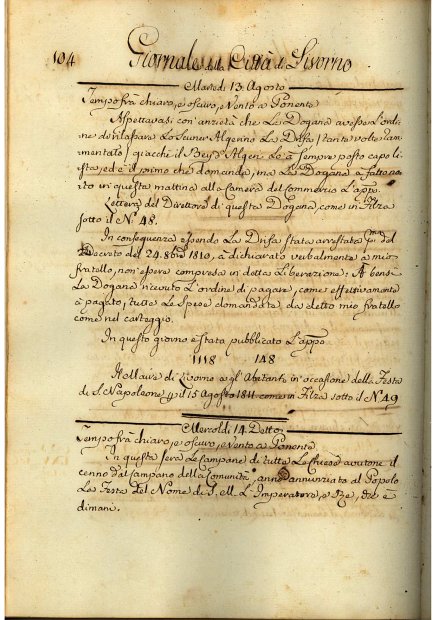 104 Giornale della Città di Livorno
Martedì 13 Agosto
Tempo frà chiaro, e oscuro, e Vento a Ponente
Aspettavasi con anzietà che La Dogana avesse L'ordi-
ne di rilassare Lo Scuner Algerino La Drisa tante volte ram-
mentato, giacchè il Bey d'Algeri Lo à sempre posto capo li-
sta, ed è il primo che domanda, ma La Dogana à fatto no-
to in questa mattina alla Camera del Commercio L'app.
Lettera del Direttore di questa Dogana, come in Filza 104
sotto il N.° 48.
In conseguenza essendo La Drisa stata arrestata del
Decreto del 24. 8bre 1810, à dichiarato verbalmente a mio
fratello, non essere compresa in detta Liberazione: À bensì
La Dogana ricevuto L'ordine di pagare, come effettivamente
à pagato, tutte Le Spese domandate da detto mio fratello
come nel carteggio.
In questo giorno è stato pubblicato L'app.
1118 148
Il Maire di Livorno agl'Abitanti in occasione della Festa
di S. Napoleone p il 15 Agosto 1811 come in Filza sotto il N.° 49
Mercoldì 14 Detto
Tempo frà chiaro, e oscuro, e Vento a Ponente
In questa sera Le Campane di tutte Le Chiese avutone il
cenno dal Campano della Comunità, anno annunziato al Popolo
La Festa del Nome di S. M. L'Imperatore, e che è
dimani.